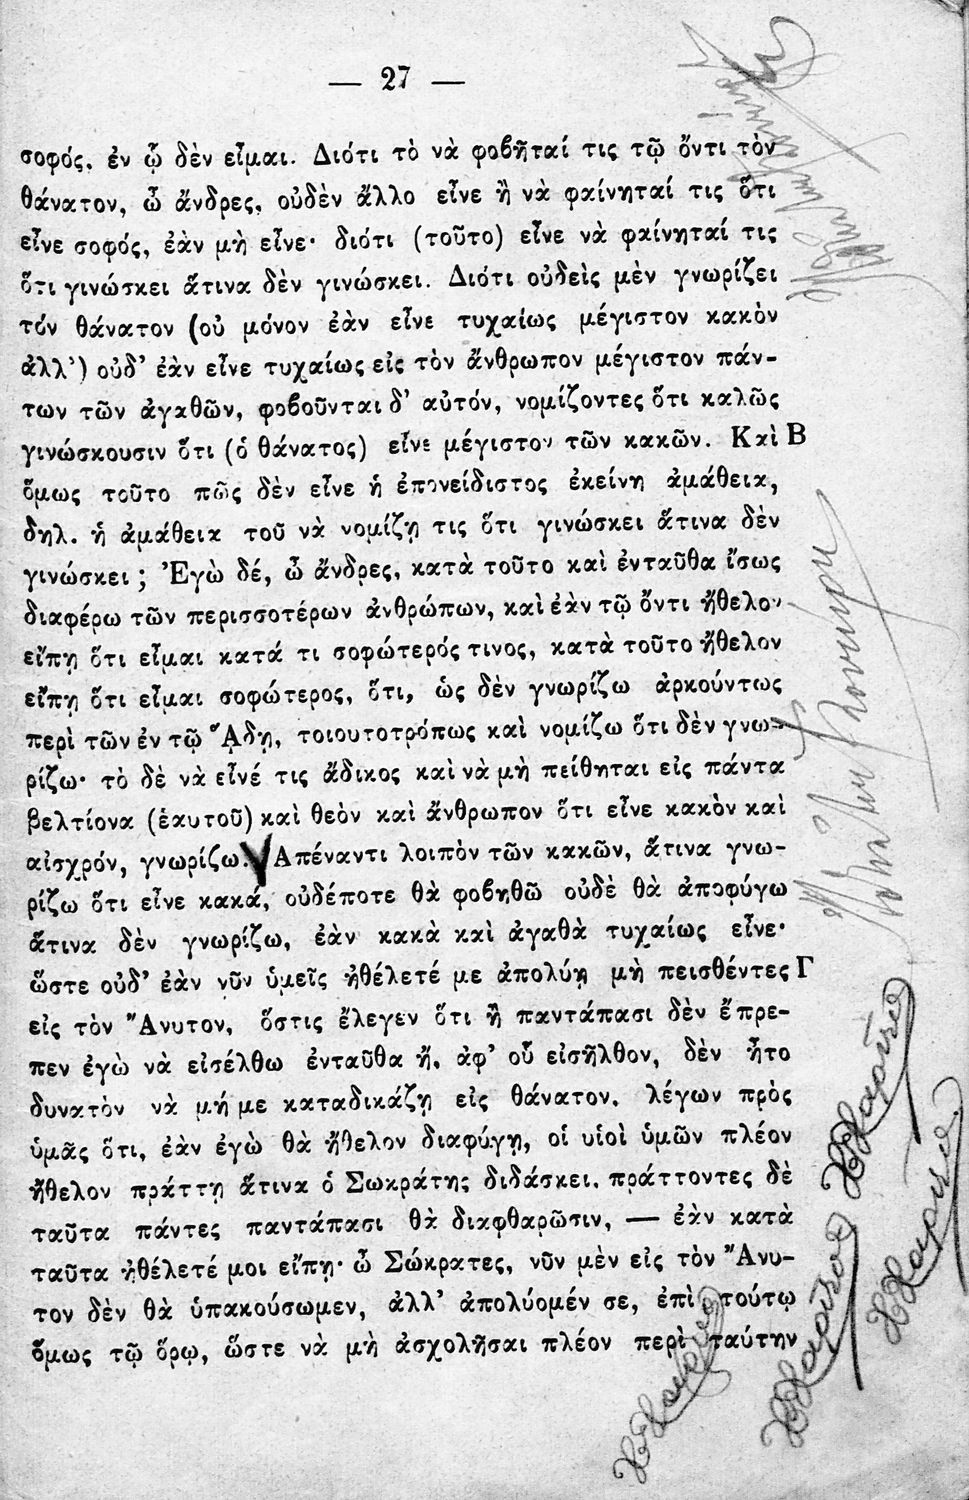 — 27 —
σοφός, ἐν ᾧ δὲν εἶμαι. Διότι τὸ νὰ φοβῆταί τις τῷ ὄντι τὸν
θάνατον, ὦ ἄνδρες, οὐδὲν ἄλλο εἶνε ἢ νὰ φαίνηταί τις ὅτι
εἶνε σοφός, ἐὰν μὴ εἶνε· διότι (τοῦτο) εἶνε νὰ φαίνηταί τις
ὅτι γινώσκει ἅτινα δὲν γινώσκει. Διότι οὐδεὶς μὲν γνωρίζει
τόν θάνατον (οὐ μόνον ἐὰν εἶνε τυχαίως μέγιστον κακὸν
ἀλλ’) οὐδ’ ἐὰν εἶνε τυχαίως εἰς τὸν ἄνθρωπον μέγιστον πάν-
των τῶν ἀγαθῶν, φοβοῦνται δ’ αὐτόν, νομίζοντες ὅτι καλῶς
γινώσκουσιν ὅτι (ὁ θάνατος) εἶνε μέγιστον τῶν κακῶν. Καὶ Β
ὅμως τοῦτο πῶς δὲν εἶνε ἡ ἐπονείδιστος ἐκείνη ἀμάθεια,
δηλ. ἡ ἀμάθεια τοῦ νὰ νομίζῃ τις ὅτι γινώσκει ἅτινα δὲν
γινώσκει ; Ἐγὼ δέ, ὦ ἄνδρες, κατὰ τοῦτο καὶ ἐνταῦθα ἴσως
διαφέρω τῶν περισσοτέρων ἀνθρώπων, καὶ ἐὰν τῷ ὄντι ἤθελον
εἴπῃ ὅτι εἶμαι κατά τι σοφώτερός τινος, κατὰ τοῦτο ἤθελον
εἴπῃ ὅτι εἶμαι σοφώτερος, ὅτι, ὡς δὲν γνωρίζω ἀρκούντως
περὶ τῶν ἐν τῷ ᾍδῃ, τοιουτοτρόπως καὶ νομίζω ὅτι δὲν γνω-
ρίζω· τὸ δὲ νὰ εἶνέ τις ἄδικος καὶ νὰ μὴ πείθηται εἰς πάντα
βελτίονα (ἑαυτοῦ) καὶ θεὸν καὶ ἄνθρωπον ὅτι εἶνε κακὸν καὶ
αἰσχρόν, γνωρίζω. Ἀπέναντι λοιπὸν τῶν κακῶν, ἅτινα γνω-
ρίζω ὅτι εἶνε κακά, οὐδέποτε θὰ φοβηθῶ οὐδὲ θὰ ἀποφύγω
ἅτινα δὲν γνωρίζω, ἐὰν κακὰ καὶ ἀγαθὰ τυχαίως εἶνε·
ὥστε οὐδ’ ἐὰν νῦν ὑμεῖς ἠθέλετέ με ἀπολύῃ μὴ πεισθέντες Γ
εἰς τὸν Ἄνυτον, ὅστις ἔλεγεν ὅτι ἢ παντάπασι δὲν ἔπρε-
πεν ἐγὼ νὰ εἰσέλθω ἐνταῦθα ἤ, ἀφ’ οὗ εἰσῆλθον, δὲν ἦτο
δυνατὸν νὰ μή με καταδικάζῃ εἰς θάνατον, λέγων πρὸς
ὑμᾶς ὅτι, ἐὰν ἐγὼ θὰ ἤθελον διαφύγῃ, οἱ υἱοὶ ὑμῶν πλέον
ἤθελον πράττῃ ἅτινα ὁ Σωκράτης διδάσκει, πράττοντες δὲ
ταῦτα πάντες παντάπασι θὰ διαφθαρῶσιν, — ἐὰν κατὰ
ταῦτα ἠθέλετέ μοι εἴπῃ· ὦ Σώκρατες, νῦν μὲν εἰς τὸν Ἄνυ-
τον δὲν θὰ ὑπακούσωμεν, ἀλλ’ ἀπολύομέν σε, ἐπὶ τούτῳ
ὅμως τῷ ὅρῳ, ὥστε νὰ μὴ ἀσχολῆσαι πλέον περὶ ταύτην